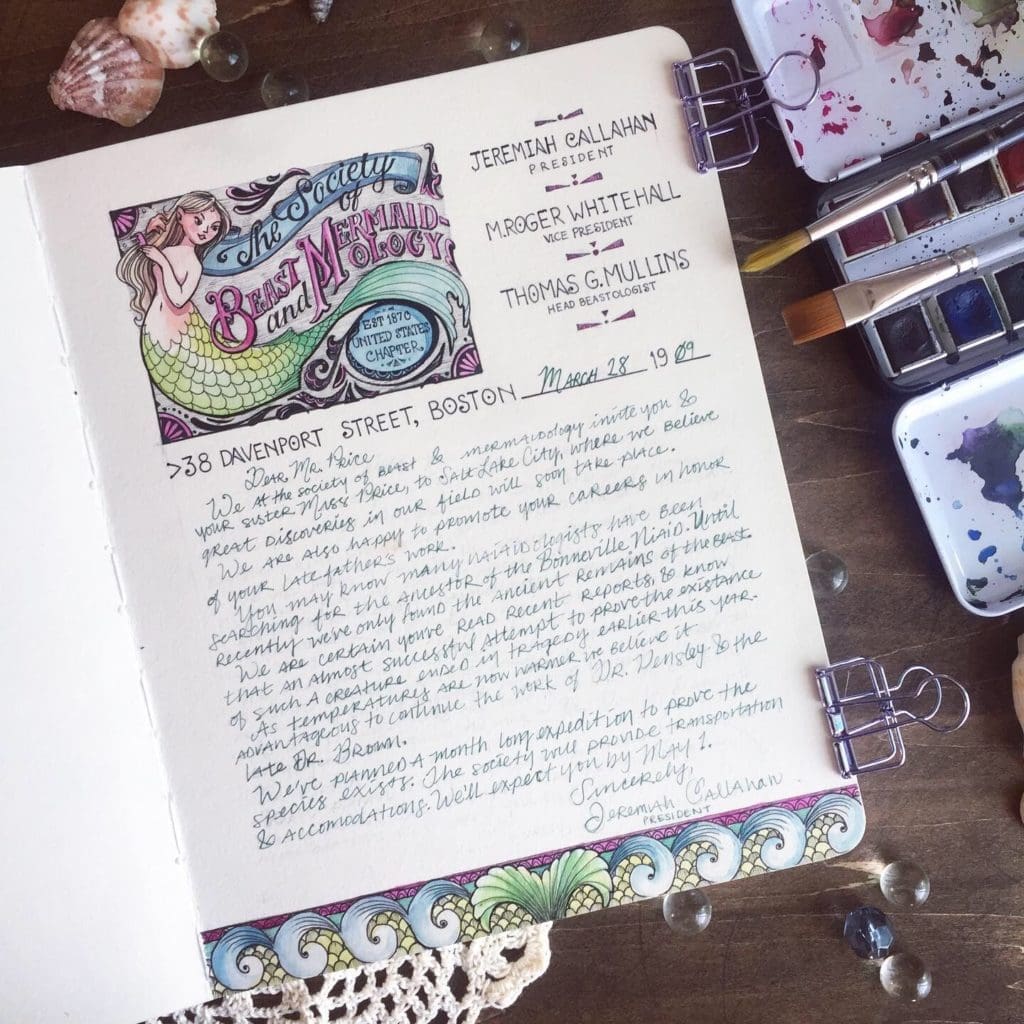 The Society
of
Beast Mermaid-
and ology
EST 1870
UNITED STATES
CHAPTER
JEREMIAH CALLAHAN
PRESIDENT
M. ROGER WHITEHALL
VICE PRESIDENT
THOMAS G. MULLINS
HEAD BEASTOLOGIST
>38 DAVENPORT STREET, BOSTON March 28 1909
Dear Mr. Price
We at the society of Beast & mermaidology invite you &
your sister Miss Price, to Salt Lake City, where we believe
great discoveries in our field will soon take place.
We are also happy to promote your careers in honor
of your late father's work.
You may know many naiadologists have been
searching for the ancestor of the Bonneville Niaid. Until
recently we've only found the ancient remains of the beast
We are certain you've read recent reports, & know
that an almost successful attempt to prove the existance
of such a creature ended in tragedy earlier this year.
As temperatures are now warmer we believe it
advantageous to continue the work of Dr. Hensley & the
late Dr. Brown.
We've planned a month long expedition to prove the
species exists. The society will provide transportation
& accomodations. We'll expect you by May 1.
Sincerely,
Jeremiah Callahan
PRESIDENT